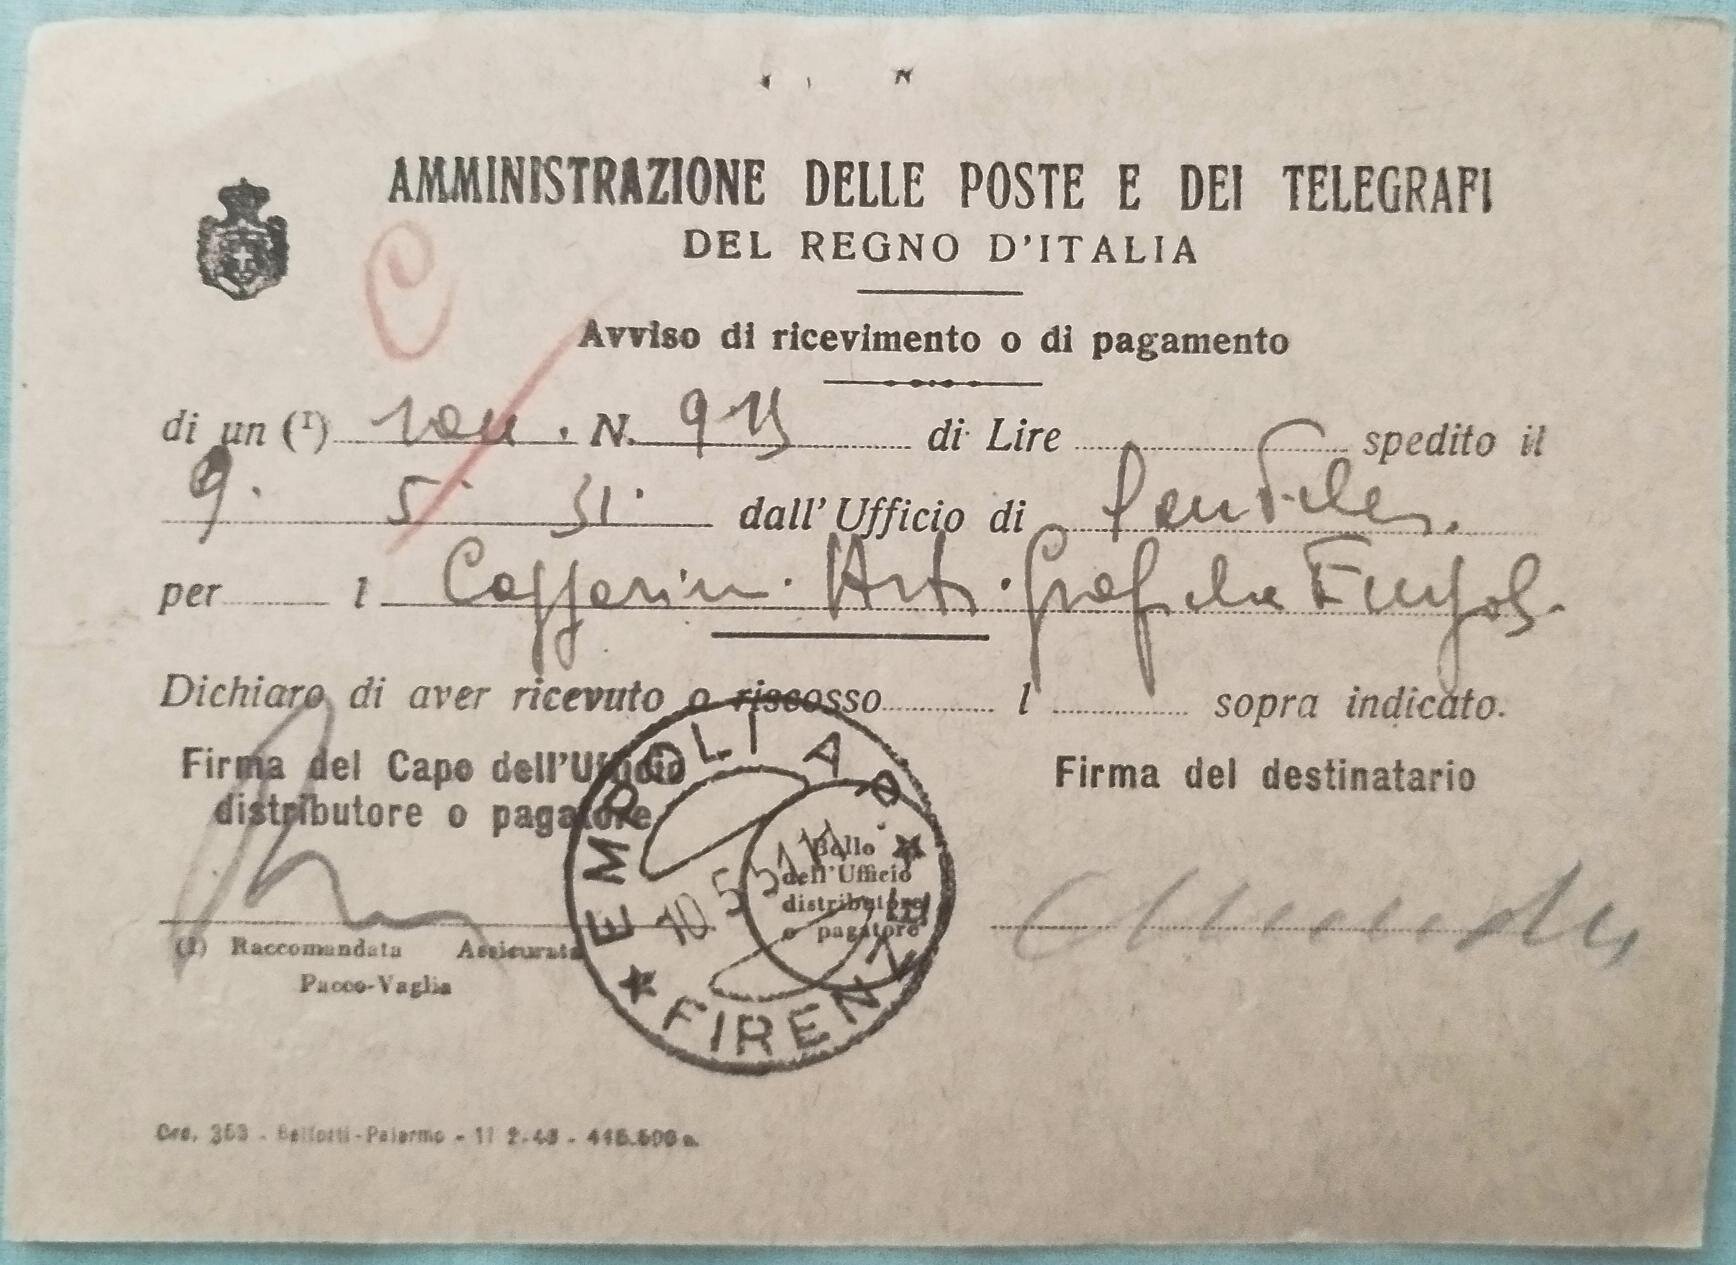 AMMINISTRAZIONE DELLE POSTE E DEI TELEGRAFI
DEL REGNO D'ITALIA
C
Avviso di ricevimento o di pagamento
di un (1) N. di Lire spedito il
9. 5 51. dall'Ufficio di
per l Arti Grafiche Empoli
Dichiaro di aver ricevuto o riscosso l sopra indicato.
Firma del Capo dell'Ufficio
distributore o pagatore
Firma del destinatario
EMPOLI A D
10 5 51
FIRENZE
Bollo
dell'Ufficio
distributore
o pagatore
(1) Raccomandata Assicurata
Pacco-Vaglia
Ord. 353 - Palermo